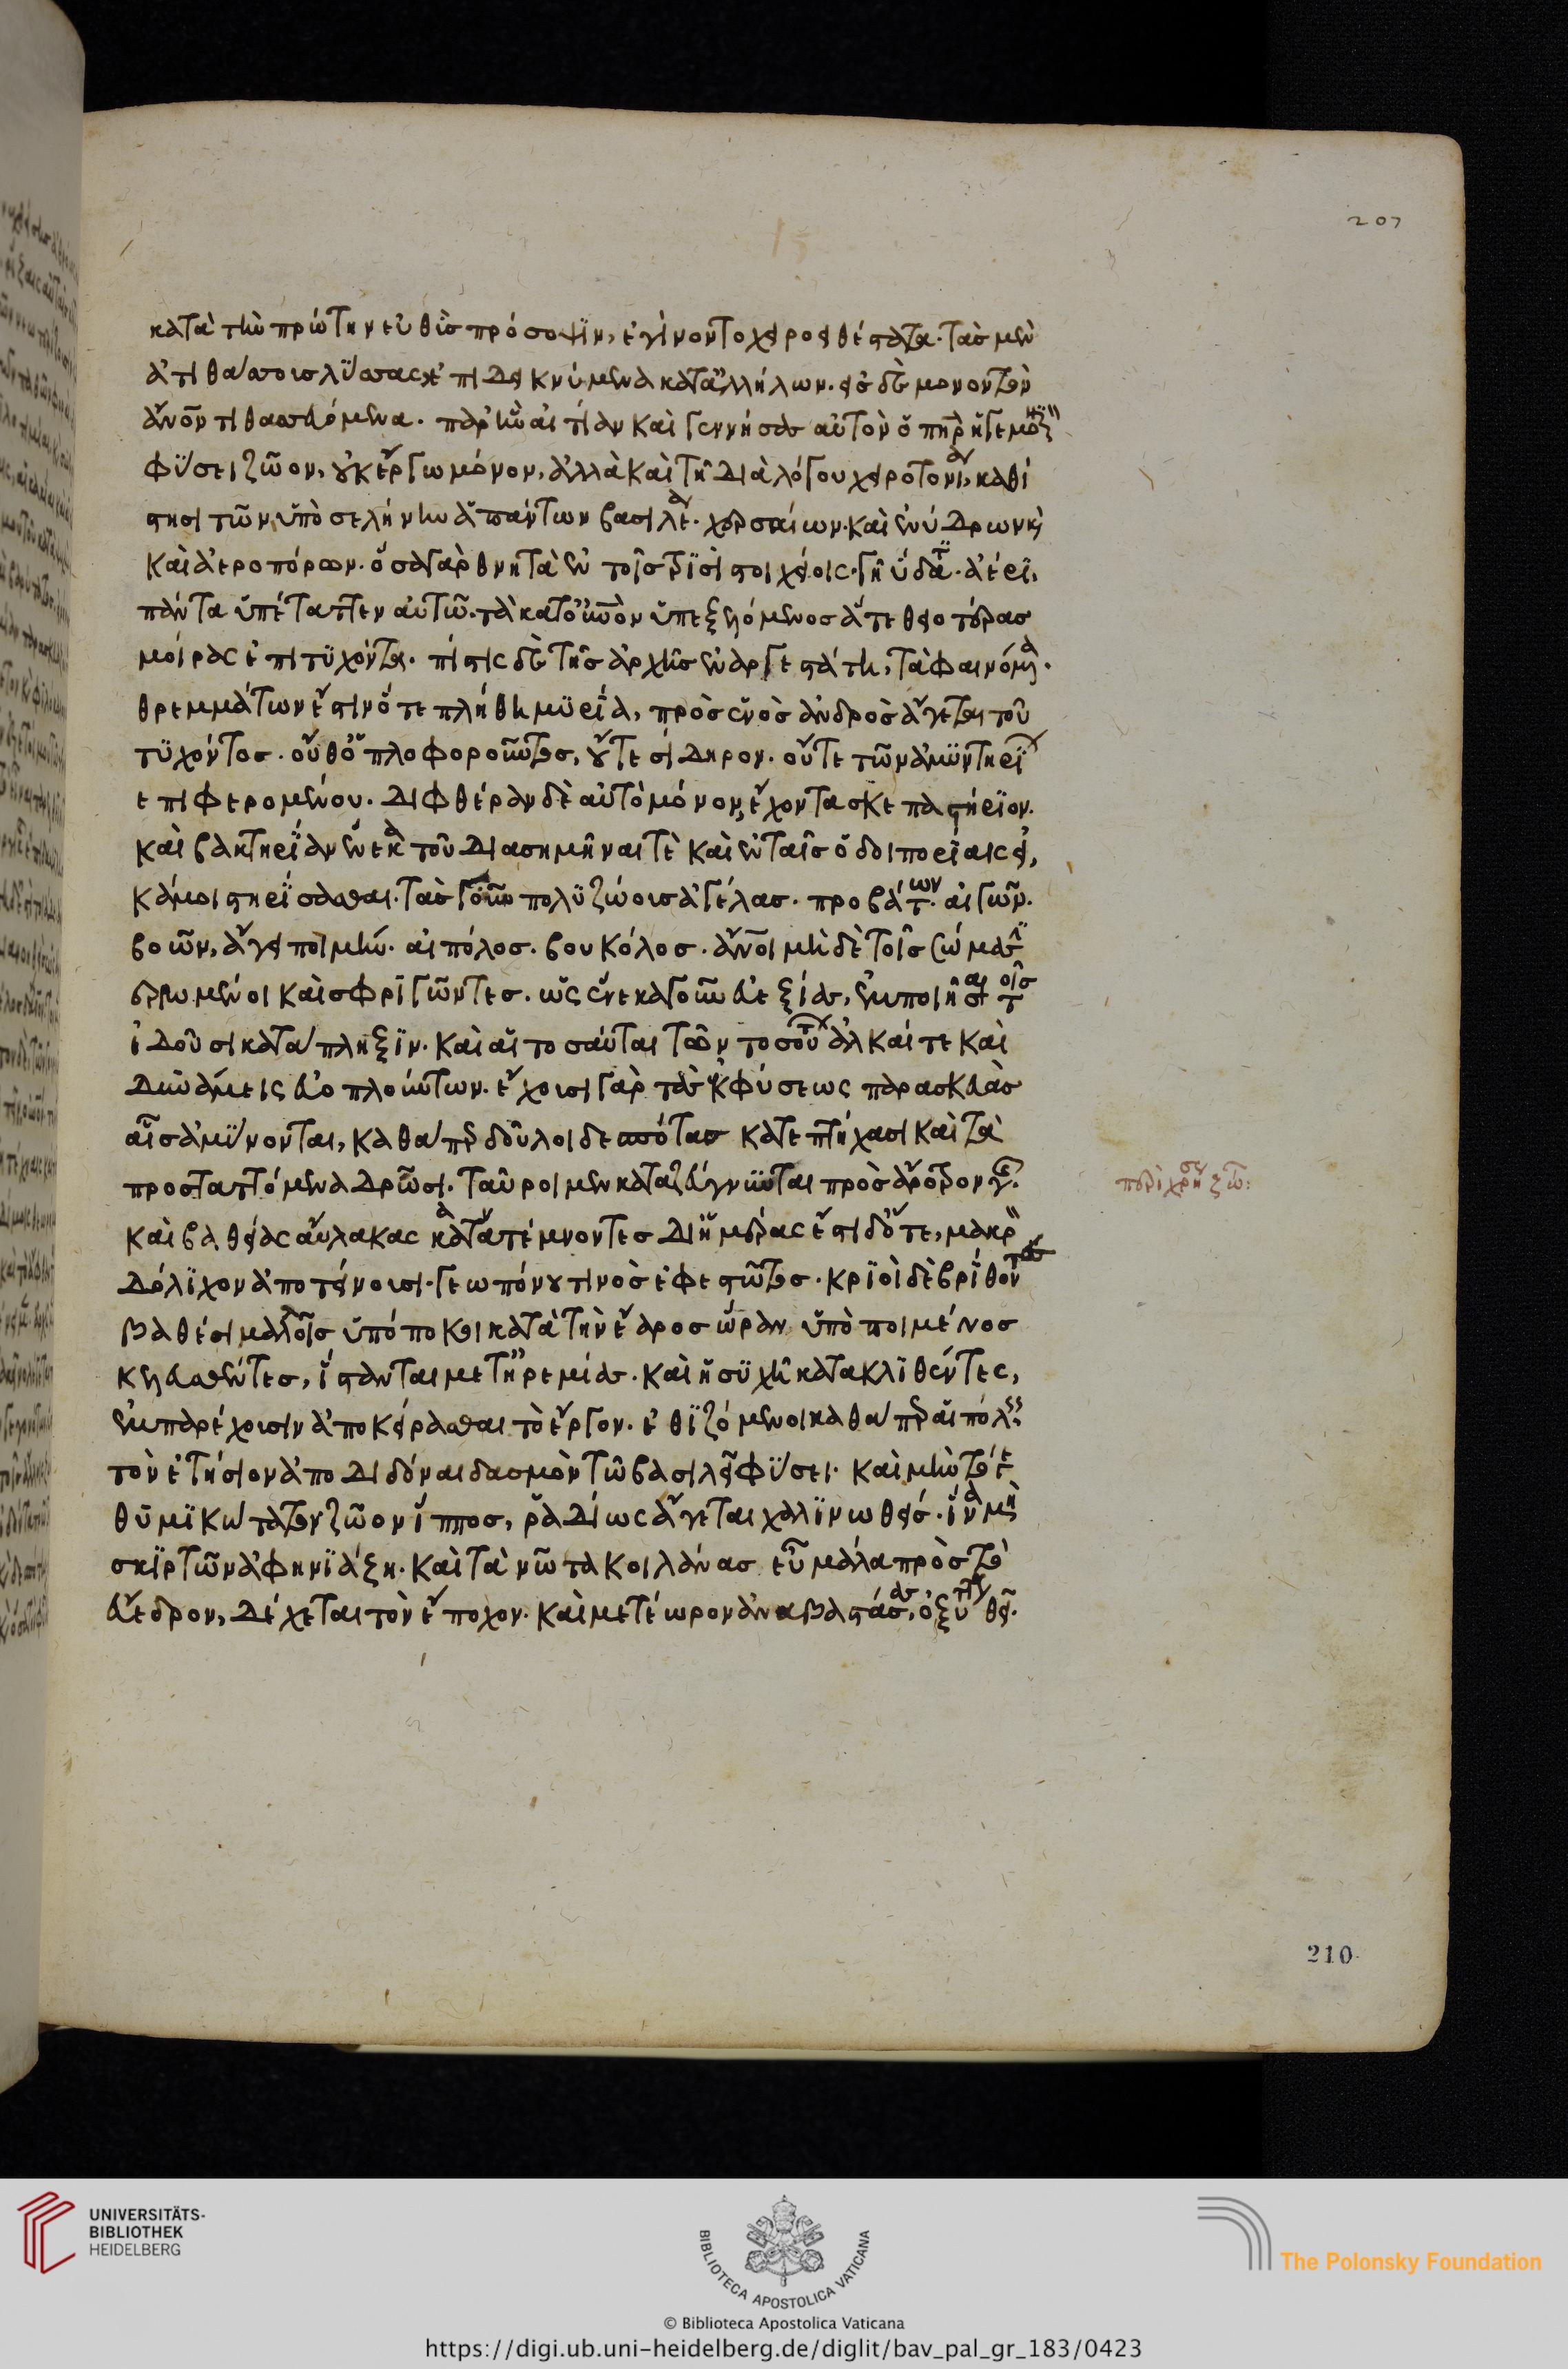 κατὰ τὴν πρώτην εὐθὺς πρόσοψϊν, ἐγίνοντο χειροηθέστατα. τὰς μὲν
ἀτιθάσους λύσσας ἐπιδεικνύμενα κατ' ἀλλήλων. εἰς δὲ μόνον τὸν
ἄνον τιθασευόμενα. παρ' ἣν αἰτίαν καὶ γεννήσας αὐτὸν ὁ πηρ ἡγεμονικὸν
φύσει ζῶον, οὐκ ἔργω μόνον, ἀλλὰ καὶ τῆ διὰ λόγου χειροτονίαν, καθί
στησι τῶν ὑπὸ σελήνην ἁπάντων βασιλέα. χερσαίων. καὶ ἐνύδρων κὶ
καὶ ἀεροπόρων. ὅσα γὰρ θνητὰ ἐν τοῖς τρϊσὶ στοιχείοις. γῆ ὕδατι. ἀέρι,
πάντα ὑπέταττεν αὐτῶ. τὰ κατ' οὐνὸν ὑπεξελόμενος ἅτε θειοτέρας
μοίρας ἐπιτυχόντα. πίστις δὲ τῆς ἀρχῆς ἐναργεστάτη, τὰ φαινόμενα.
θρεμμάτων ἔστιν ὅτε πλήθη μϋρία, πρὸς ἑνὸς ἀνδρὸς ἄγεται τοῦ
τϋχόντος. οὔθ' ὁπλοφοροῦντος, οὔτε σίδηρον. οὔτε τῶν ἀμϋντηρίων
ἐπιφερομένου. διφθέραν δὲ αὐτὸ μόνον ἔχοντας σκεπαστήριον.
καὶ βακτηρίαν ἕνεκα τοῦ διασημῆναι τὲ καὶ ἐν ταῖς ὁδοιπορίαις εἰ,
κάμοι στηρίσασθαι. τὰς γοῦν πολϋζώους ἀγέλας. προβάτων. αἰγῶν.
βοῶν, ἄγει ποιμήν. αἰπόλος. βουκόλος. ἄνοι μὴ δὲ τοῖς σώμασϊ
ἐρρωμένοι καὶ σφριγῶντες. ὡς ἕνεκα γοῦν εὐεξίας, ἐμποιῆσαι τοῖς
ἰδοῦσι κατάπληξϊν. καὶ αἱ τοσαῦται τῶν τοσούτων ἀλκαί τε καὶ
δυνάμεις εὐοπλούντων. ἔχουσι γὰρ τὰς ἐκ φύσεως παρασκευὰς
αἷς ἀμύνονται, καθάπερ δοῦλοι δεσπότας κατεπτήχασι καὶ τὰ
προσταττόμενα δρῶσι. ταῦροι μὲν καταζεύγνϋνται πρὸς ἄροτρον γῆς.
καὶ βαθείας αὔλακας κατατέμνοντες δι' ἡμέρας ἔστι δ' ὅτε, μακρὸν
δόλϊχον ἀποτείνουσι. γεωπόνου τινὸς ἐφεστῶτος. κρϊοὶ δὲ βρίθοντας
βαθέσι μαλλοῖς ὑπόποκοι κατὰ τὴν ἔαρος ὥραν ὑπὸ ποιμένος
κελευσθέντες, ἵστανται μετ' ἠρεμίας. καὶ ἡσϋχῆ κατακλϊθέντες,
ἐμπαρέχουσιν ἀποκείρασθαι τὸ ἔργον. ἐθϊζόμενοι καθάπερ αἱ πόλεις
τὸν ἐτήσιον ἀποδιδόναι δασμὸν τῶ βασιλεῖ φύσει. καὶ μὴν τό τε
θῡμϊκώτατον ζῶον ἵππος, ῥαδίως ἄγεται χαλϊνωθείς. ἵνα μὴ
σκϊρτῶν ἀφηνϊάξη. καὶ τὰ νῶτα κοιλάνας εὖ μάλα πρὸς τὸ
εὔεδρον, δέχεται τὸν ἔποχον. καὶ μετέωρον ἀναβαστάσας, ὀξύτητι θεῖ.
περὶ χρήσεως ζώων:
207
210
UNIVERSITÄTS-
BIBLIOTHEK
HEIDELBERG
BIBLIOTECA APOSTOLICA VATICANA
The Polonsky Foundation
© Biblioteca Apostolica Vaticana
https://digi.ub.uni-heidelberg.de/diglit/bav_pal_gr_183/0423